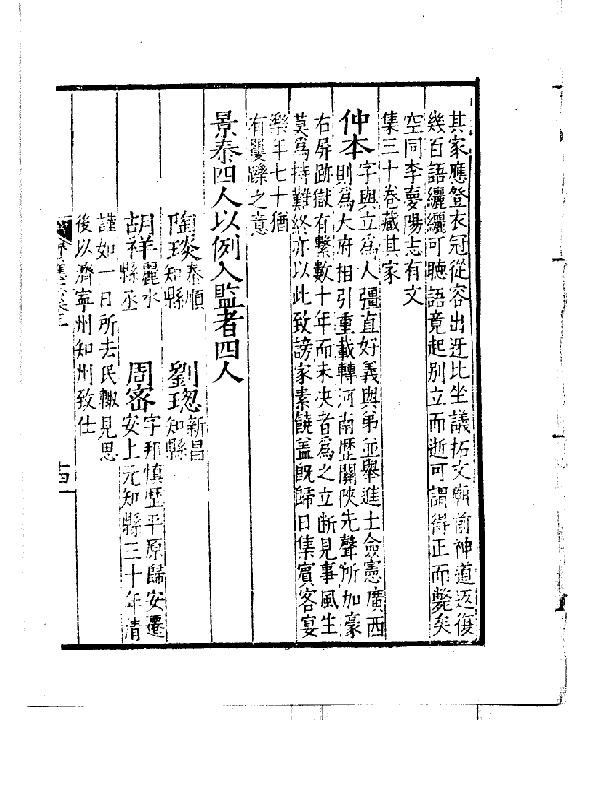 其家應登衣冠從容出迓比坐議拓文廟前神道迈復
幾百語纚纚可聽語竟起別立而逝可謂得正而斃矣
空同李夢陽志有文
集三十卷藏其家
仲本字與立為人彊直好義與弟並舉進士僉憲廣西
則為大府相引重載轉河南歷關陝先聲所加豪
右屏跡獄有繫數十年而未決者為之立斷見事風生
莫為持難終亦以此致謗家素饒盖既歸日集賓客宴
樂年七十猶
有矍鑠之意
景泰四人以例入監者四人
陶琰泰順知縣 劉璁新昌知縣
胡祥麗水縣丞 周密字邦慎歷平原歸安遷
安上元知縣三十年清
謹如一日所去民輙見思
後以濟寧州知州致仕
十四